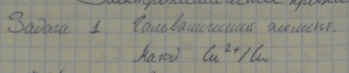 Задача 1 Гальванический элемент.
Катод Cu²⁺/Cu